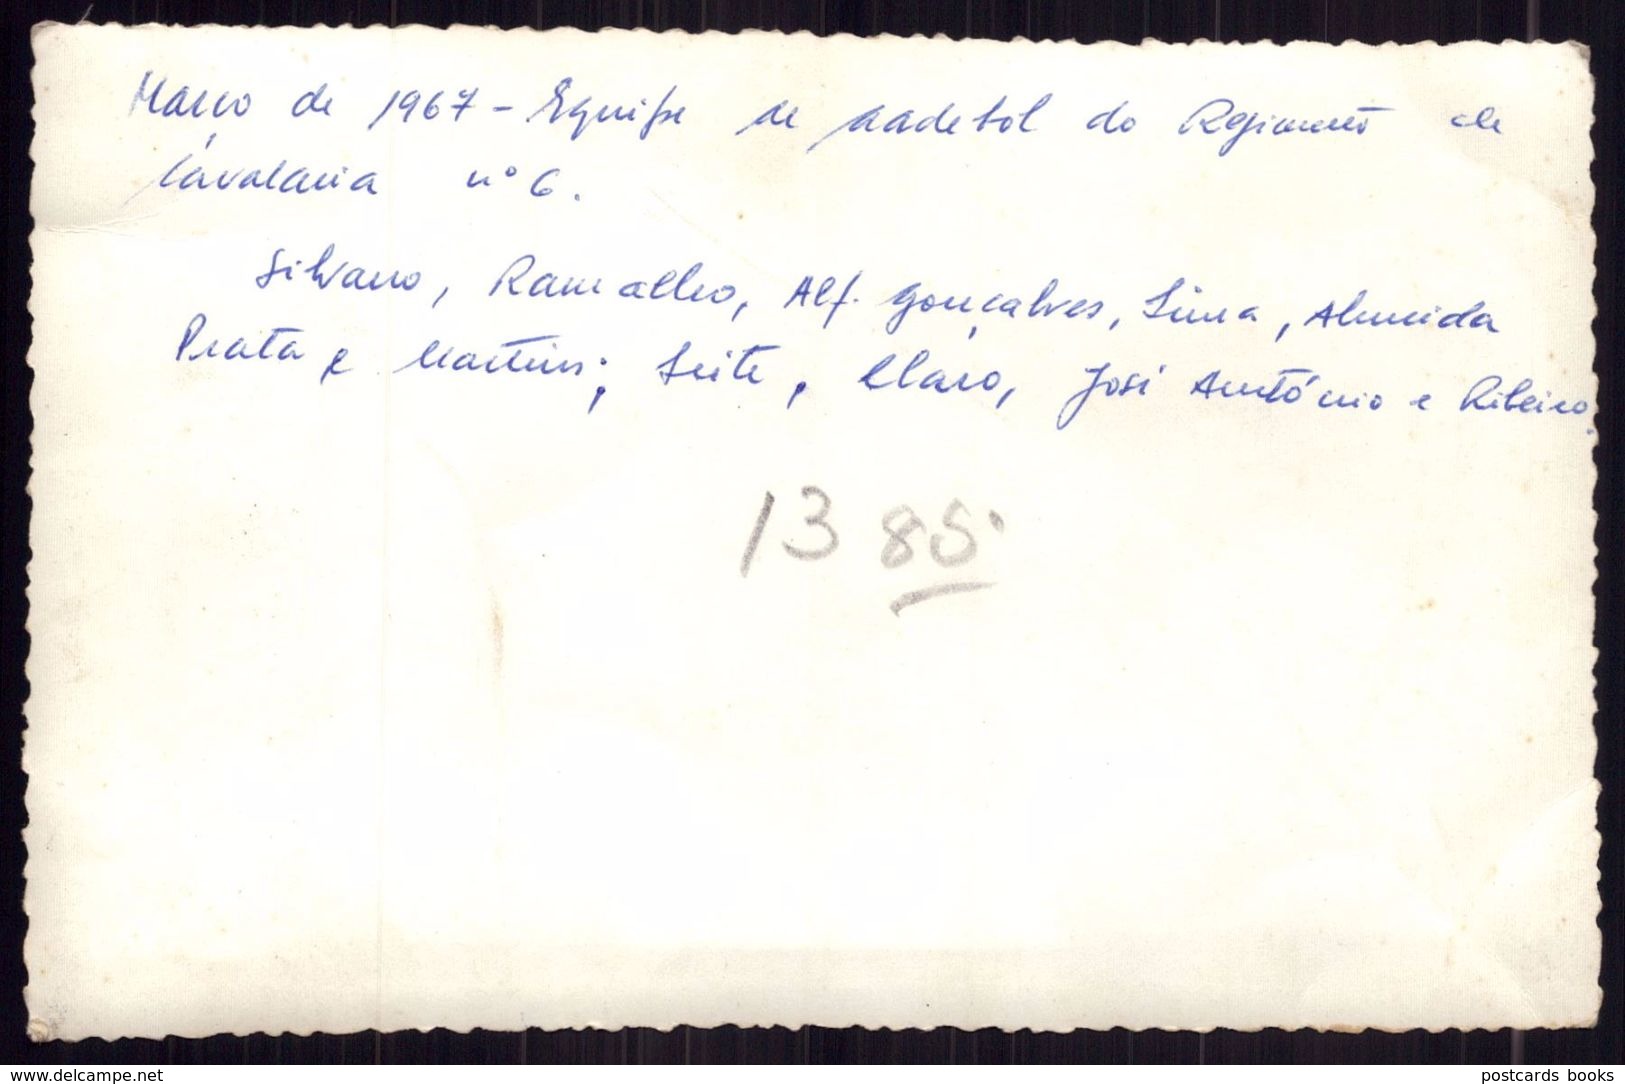 Março de 1967 - Equipe de andebol do Regimento de
Cavalaria nº 6.
Silvano, Ramalho, Alf. Gonçalves, Lima, Almeida
Prata e Martins; Leite, Claro, José António e Ribeiro.
13 85
www.delcampe.net
postcards books